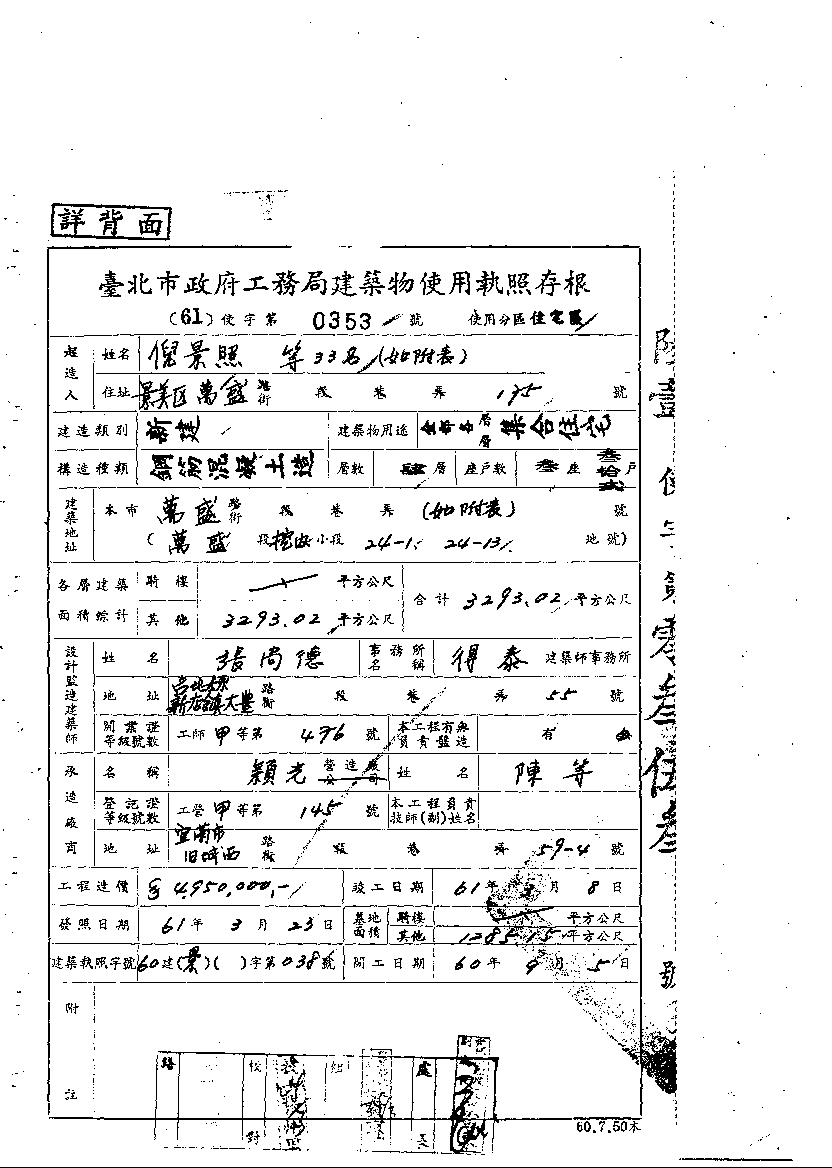 詳背面
臺北市政府工務局建築物使用執照存根
(61)使字第 0353 號 使用分區住宅區
起造人 姓名 倪景照 等33名(如附表)
住址 景美區萬盛路街 段 巷 弄 175 號
建造類別 新建 建築物用途 全部各層層集合住宅
構造種類 鋼筋混凝土造 層數 肆層 座戶數 叁座叁拾貳戶
建築地址 本市 萬盛路街 段 巷 弄 (如附表) 號
(萬盛 段 小段 24-1. 24-13 地號)
各層建築面積綜計 騎樓 平方公尺 合計 3293.02 平方公尺
其他 3293.02 平方公尺
設計監造建築師 姓名 張尚德 事務所名稱 得泰 建築師事務所
地址 台北縣新店鎮大豐路街 段 巷 弄 55 號
開業證等級號數 工師甲等第 476 號 本工程有無負責監造 有
承造廠商 名稱 穎光營造廠公司 姓名 陳等
登記證等級號數 工營甲等第 145 號 本工程負責技師(副)姓名
地址 宜蘭市旧城西路街 段 巷 弄 59-4 號
工程造價 $4,950,000.- 竣工日期 61年 月 8日
發照日期 61年 3月 23日 基地面積 騎樓 平方公尺
其他 1285.15 平方公尺
建築執照字號 60建(景)( )字第038號 開工日期 60年 9月 5日
附註
校對
組
處長
60.7.50本
陸壹 使字第零叁伍叁 號